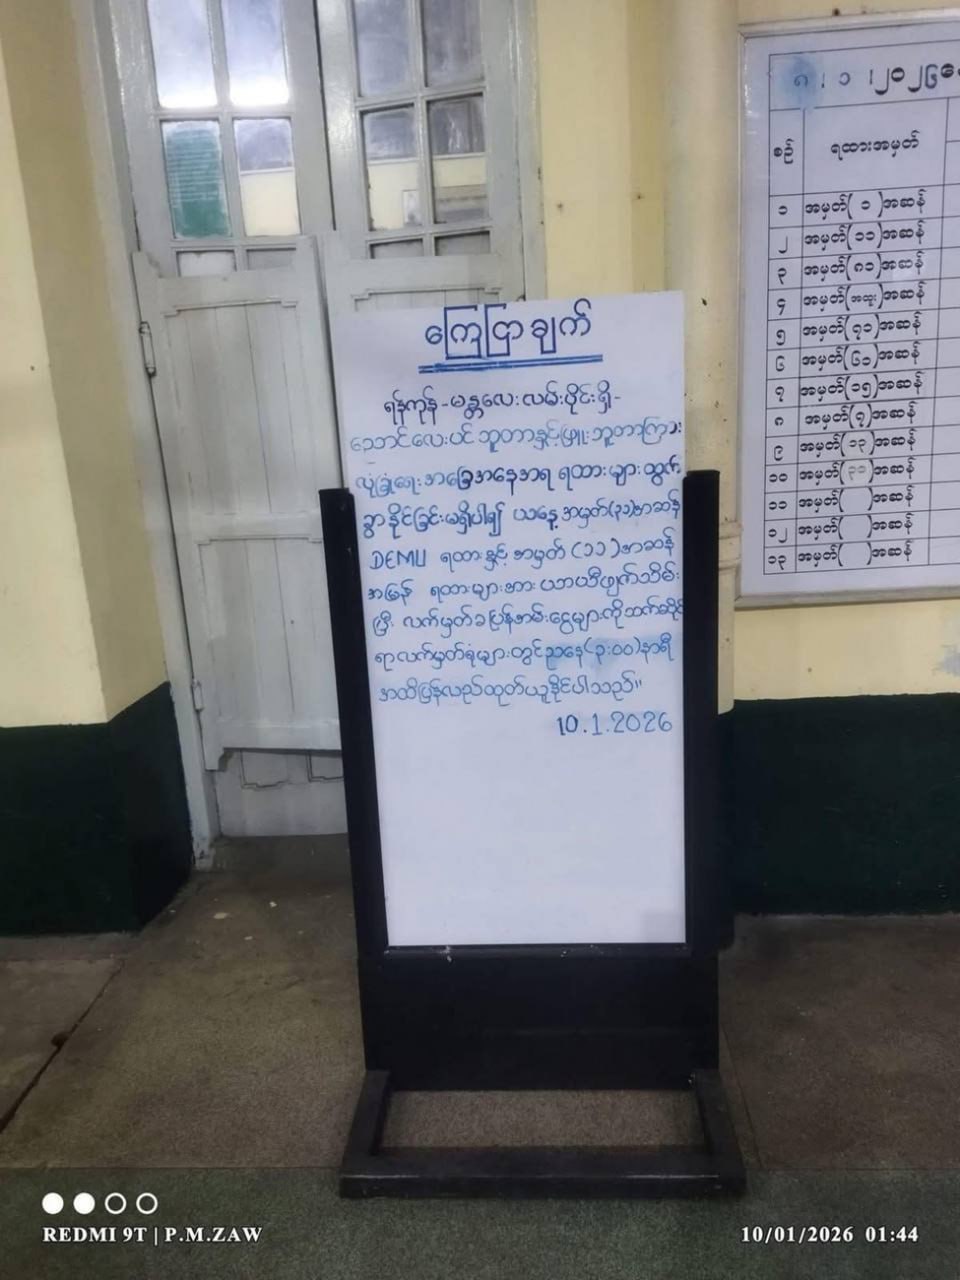 ကြေငြာချက်
ရန်ကုန်-မန္တလေးလမ်းပိုင်းရှိ-
ညောင်လေးပင်ဘူတာနှင့်ဖြူးဘူတာကြား
လုံခြုံရေးအခြေအနေအရ ရထားများထွက်
ခွာနိုင်ခြင်းမရှိပါ၍ ယနေ့အမှတ်(၃၁)အဆန်
DEMU ရထားနှင့် အမှတ်(၁၁)အဆန်
အမြန် ရထားများအား ယာယီဖျက်သိမ်း
ပြီး လက်မှတ်ခပြန်အမ်းငွေများကိုသက်ဆိုင်
ရာလက်မှတ်ရုံများတွင်ညနေ(၃:၀၀)နာရီ
အထိပြန်လည်ထုတ်ယူနိုင်ပါသည်။
10.1.2026
၈ ၊ ၁ ၊ ၂၀၂၆နေ
စဉ် ရထားအမှတ်
၁ အမှတ်( ၁ )အဆန်
၂ အမှတ်(၁၁)အဆန်
၃ အမှတ်(၈၁)အဆန်
၄ အမှတ်(အထူး)အဆန်
၅ အမှတ်(၇၁)အဆန်
၆ အမှတ်(၆၁)အဆန်
၇ အမှတ်(၁၅)အဆန်
၈ အမှတ်(၇)အဆန်
၉ အမှတ်(၁၃)အဆန်
၁၀ အမှတ်(၃၁)အဆန်
၁၁ အမှတ်( )အဆန်
၁၂ အမှတ်( )အဆန်
၁၃ အမှတ်( )အဆန်
REDMI 9T | P.M.ZAW
10/01/2026 01:44